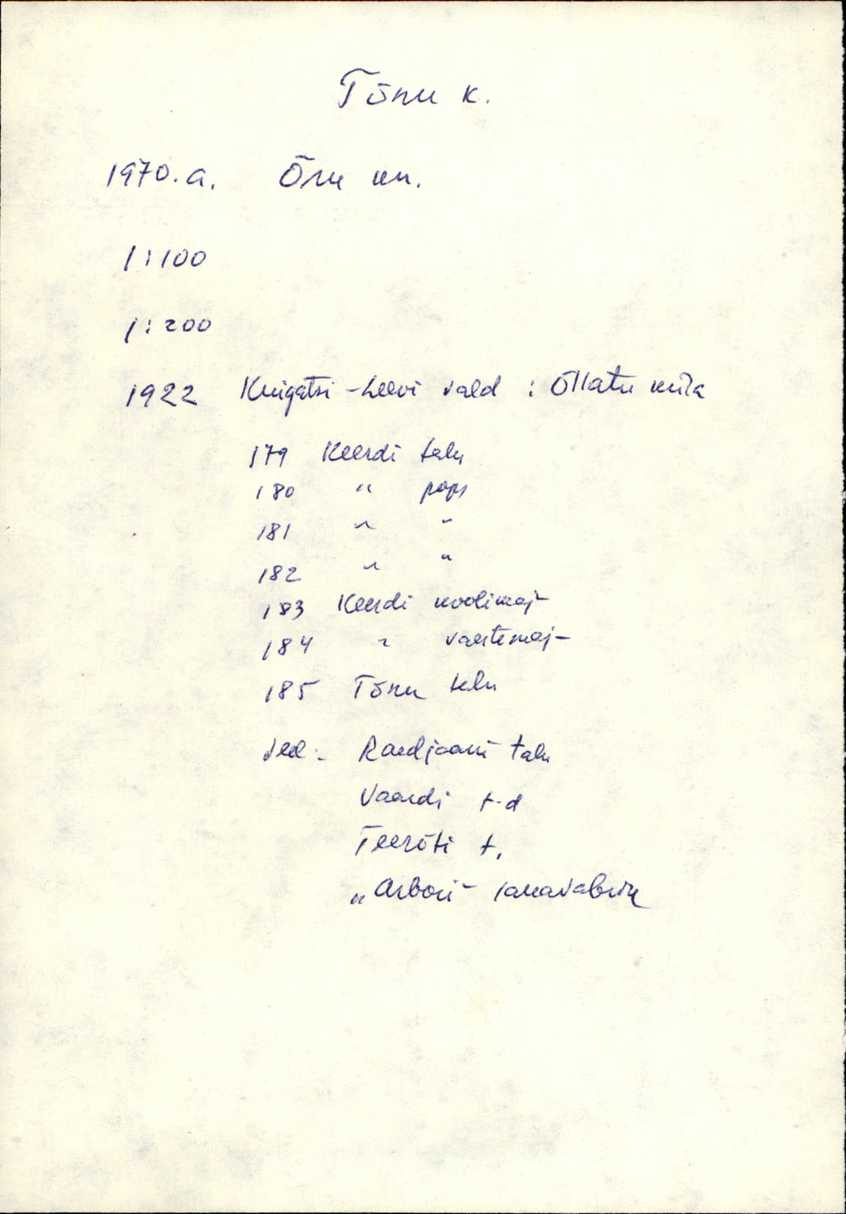 Tõnu k.
1970.a. Õru
1:100
1:200
1922 Kuigatsi-Leevi vald : Õllatu küla
179 Keerdi talu
180 " pops
181 " "
182 " "
183 Keerdi koolimaj-
184 " vaestemaj-
185 Tõnu talu
Raudjaani talu
Vaardi t-d
Teeröti t.
"Arbori"